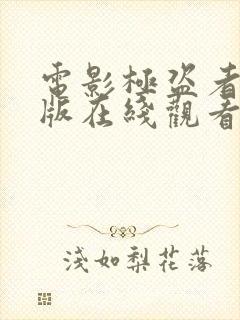 電影極盜者
版在綫觀看
淺如梨花落